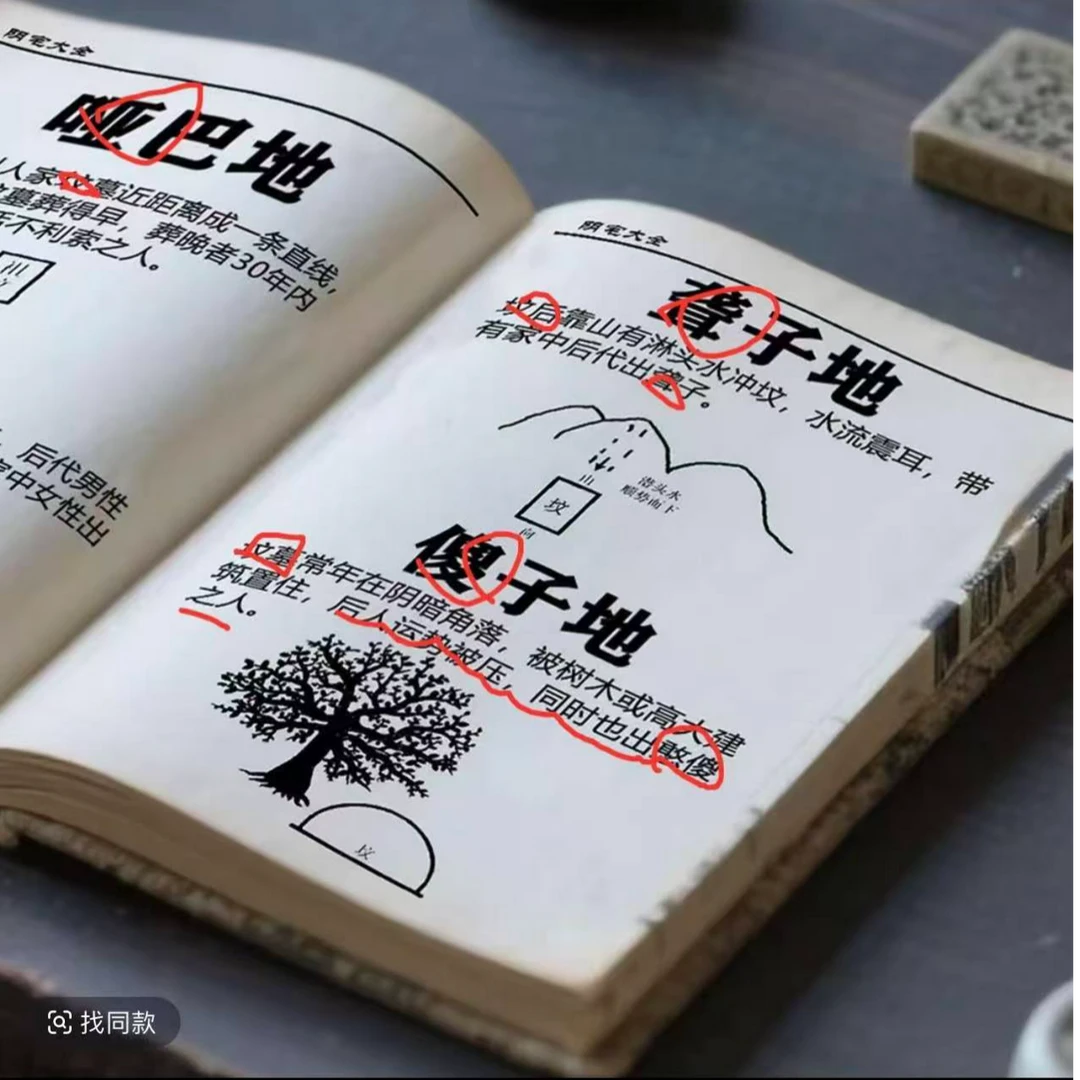 阴宅大全
哑巴地
人家坟墓近距离成一条直线，
墓葬得早，葬晚者30年内
不利索之人。
后代男性
中女性出
阴宅大全
聋子地
坟后靠山有淋头水冲坟，水流震耳，带
有家中后代出聋子。
山
坟
向
淋头水
顺势而下
傻子地
坟墓常年在阴暗角落，被树木或高大建
筑置住，后人运势被压，同时也出憨傻
之人。
坟
找同款